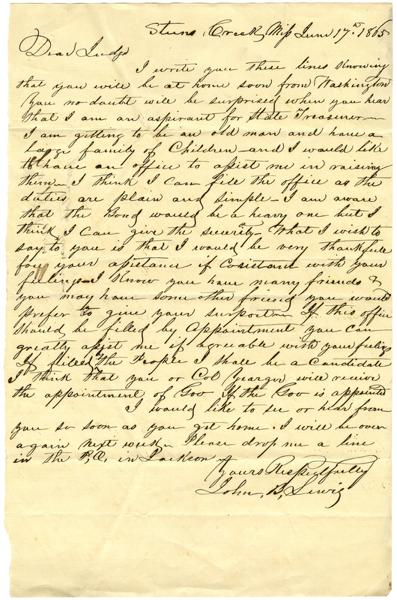 Steens Creek, Miss June 17th 1865
Dear Judge
I write you these lines Knowing
that you will be at home soon from Washington
You no doubt will be surprised when you hear
that I am an aspirant for State Treasurer—
I am getting to be an old man and have a
large family of Children—and I would like
to have an office to assist me in raising
them— I think I can fill the office as the
duties are plain and simple— I am aware
that the Bond would be a heavy one but I
think I can give the security— What I wish to
say to you is that I would be very thankfull
for your assistance if Cosistant with your
feelings— I Know you have many friends &
you may have some other friend you would
prefer to give your support— If this office
should be filled by Appointment you can
greatly assist me if agreeable with your feelings
If filled The People I shall be a Candidate
I think that you or Col Yearger will receive
the appointment of Gov If the Gov is appointed
I would like to see or hear from
you so soon as you get home. I will be over
again next week— Please drop me a line
in the P.O. in Jackson
Yours Respectfully
John B, Lewis